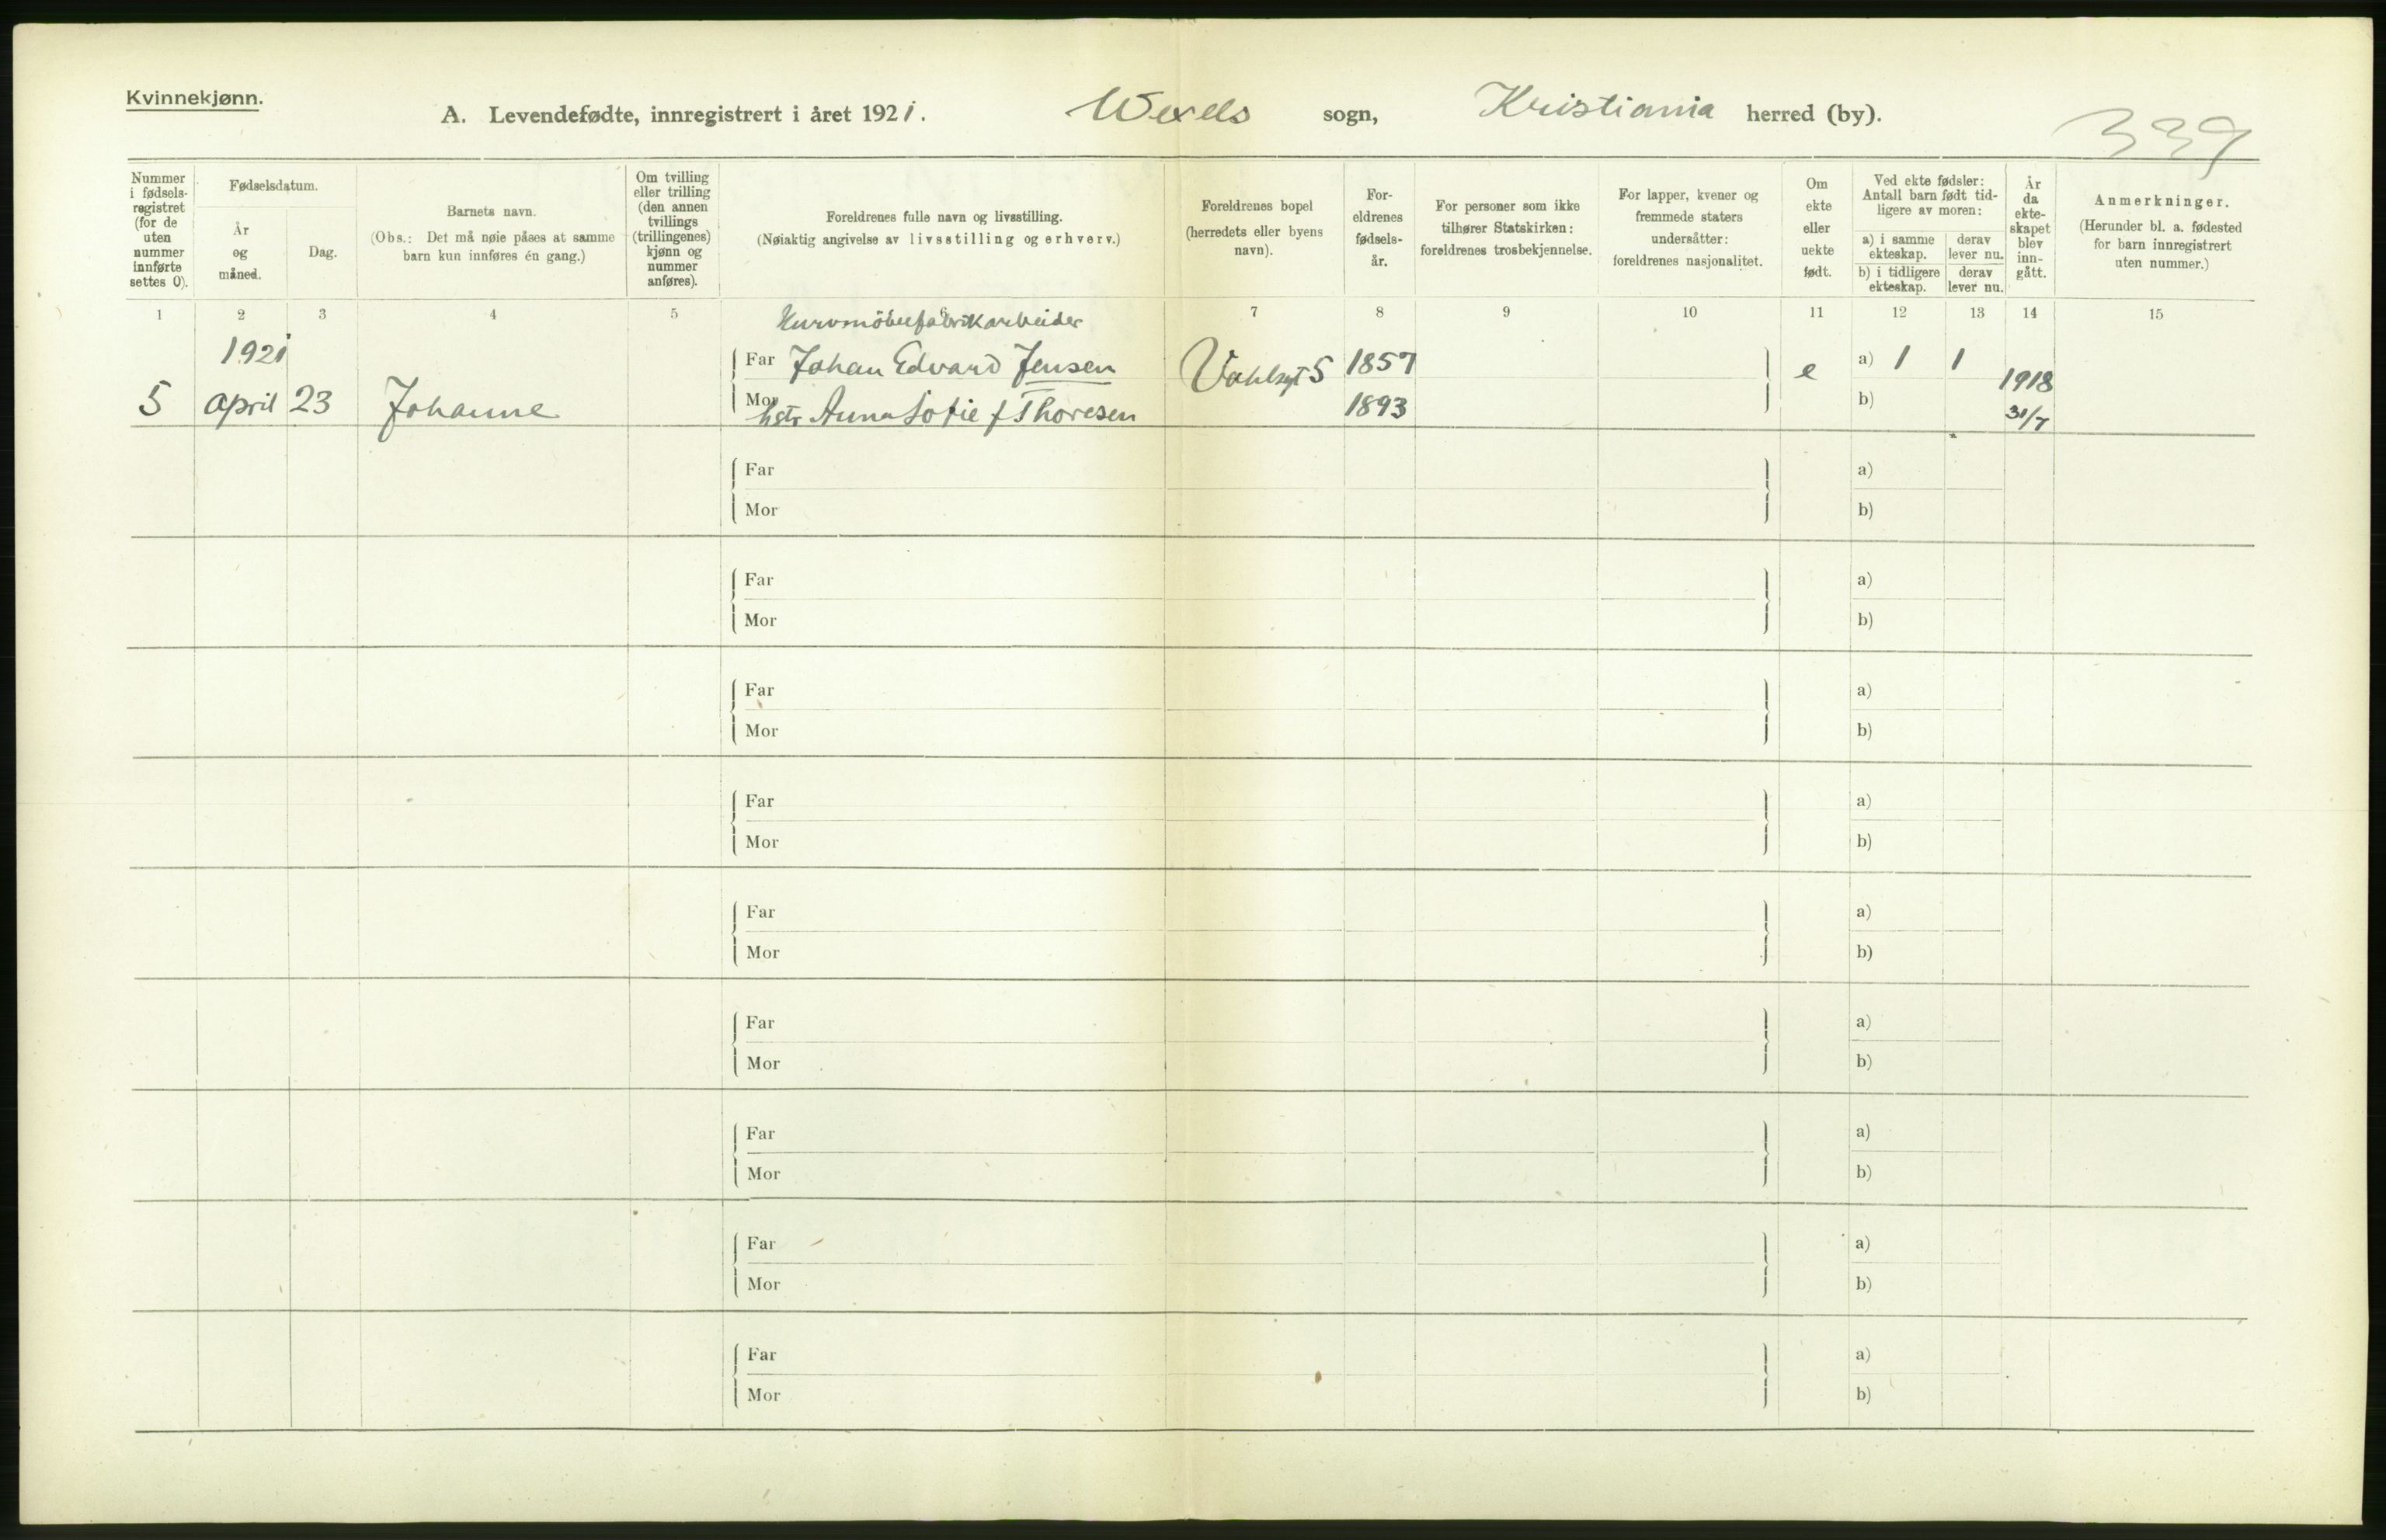 Kvinnekjønn.
A. Levendefødte, innregistrert i året 1921. Wexels sogn, Kristiania herred (by).
339
Nummer i fødsels-registret (for de uten nummer innførte settes 0).
Fødselsdatum.
År og måned.
Dag.
Barnets navn.
(Obs.: Det må nøie påses at samme barn kun innføres én gang.)
Om tvilling eller trilling (den annen tvillings (trillingenes) kjønn og nummer anføres).
Foreldrenes fulle navn og livsstilling.
(Nøiaktig angivelse av livsstilling og erhverv.)
Foreldrenes bopel (herredets eller byens navn).
For-eldrenes fødsels-år.
For personer som ikke tilhører Statskirken: foreldrenes trosbekjennelse.
For lapper, kvener og fremmede staters undersåtter: foreldrenes nasjonalitet.
Om ekte eller uekte født.
Ved ekte fødsler: Antall barn født tid-ligere av moren:
a) i samme ekteskap.
derav lever nu.
b) i tidligere ekteskap.
derav lever nu.
År da ekte-skapet blev inn-gått.
Anmerkninger.
(Herunder bl. a. fødested for barn innregistrert uten nummer.)
1 2 3 4 5 6 7 8 9 10 11 12 13 14 15
Kurvmöbelfabrikarbeider
1921 Far Johan Edvard Jensen Vahlsgt 5 1857 e a) 1 1 1918
5 april 23 Johanne Mor hstr Anna Sofie f Thoresen 1893 b) 31/7
Far a)
Mor b)
Far a)
Mor b)
Far a)
Mor b)
Far a)
Mor b)
Far a)
Mor b)
Far a)
Mor b)
Far a)
Mor b)
Far a)
Mor b)
Far a)
Mor b)